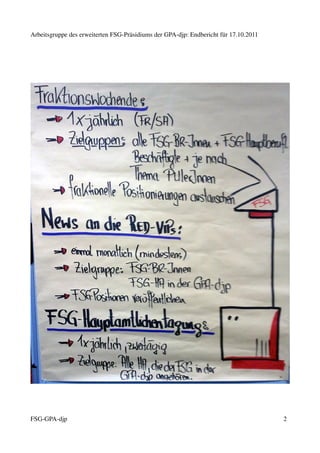 Arbeitsgruppe des erweiterten FSG-Präsidiums der GPA-djp: Endbericht für 17.10.2011
Fraktionswochende:
→ 1x jährlich (FR/SA)
→ Zielgruppen: alle FSG-BR-Innen + FSG-Hauptberufl.
Beschäftigte + je nach
Thema FULeiInnen
→ fraktionelle Positionierungen austauschen
FSG
News an die RED-VIPs:
→ einmal monatlich (mindestens)
→ Zielgruppe: FSG-BR-Innen
FSG-HA in der GPA-djp
→ FSG Positionen veröffentlichen
FSG-Hauptamtlichentagung:
→ 1x jährlich, zweitägig
→ Zielgruppe: Alle HA, die der FSG in der
GPA-djp angehören.
FSG-GPA-djp
2